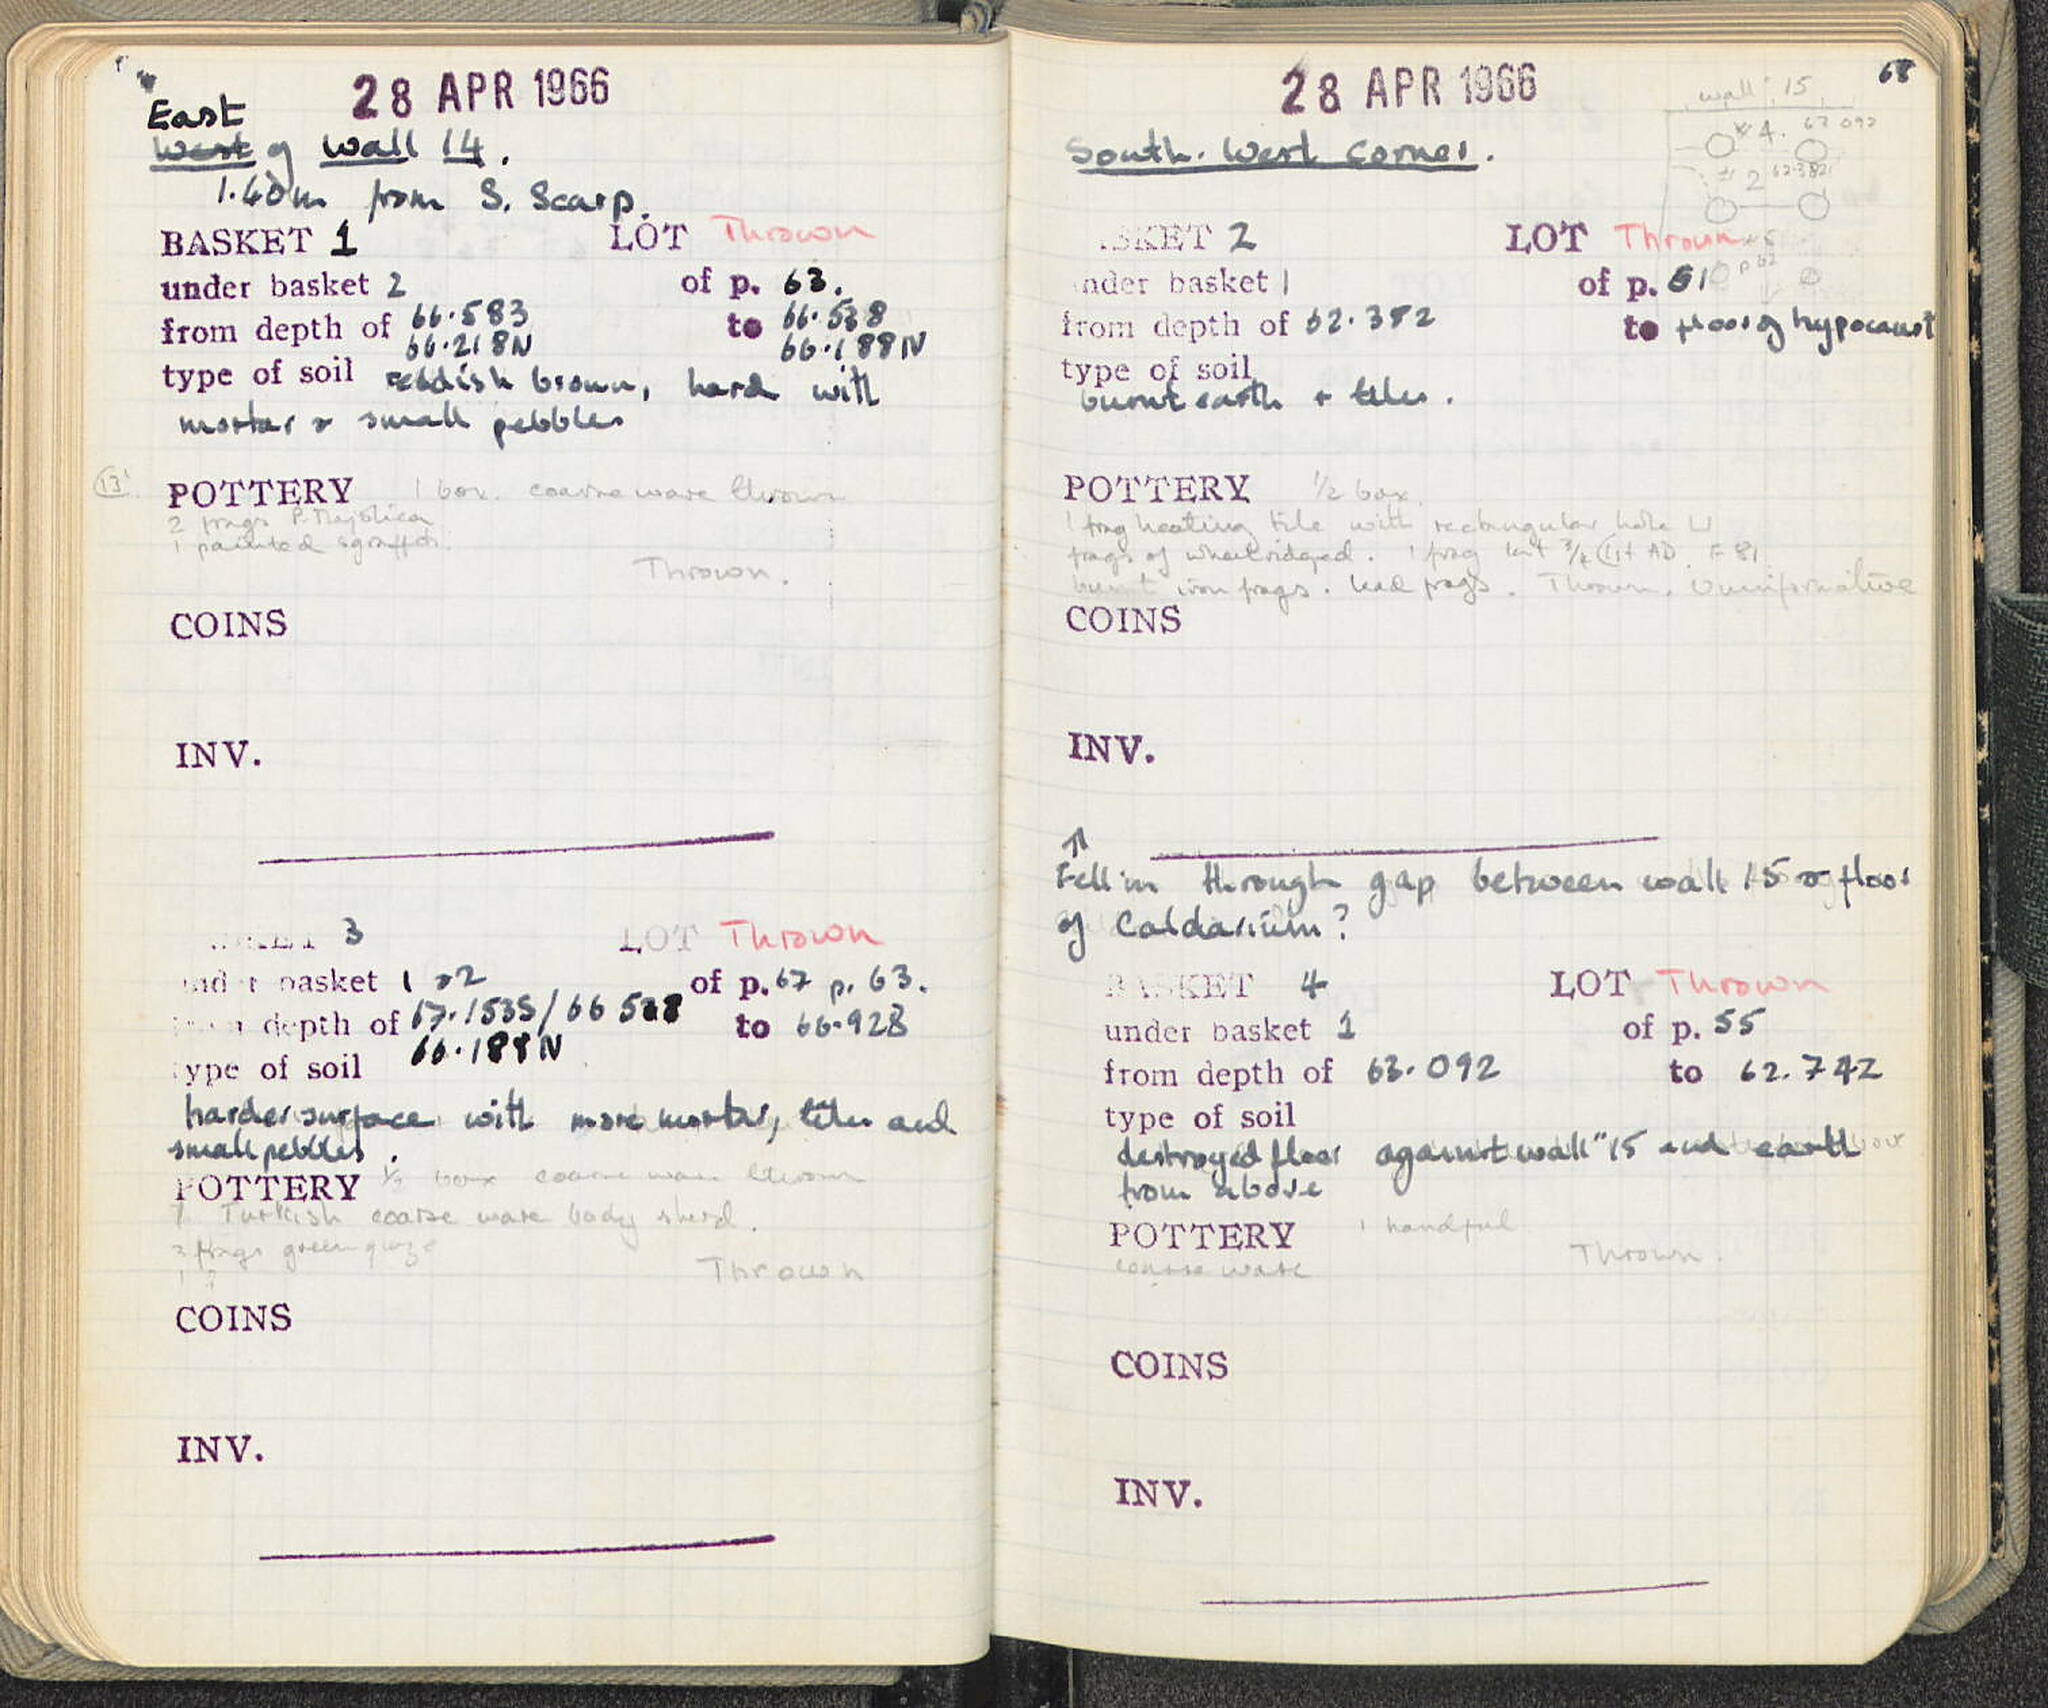 28 APR 1966
East
West of Wall 14.
1.40m from S. Scarp.
BASKET 1 LOT Thrown
under basket 2 of p. 63.
from depth of 66.583 to 66.538
66.218N 66.188N
type of soil reddish brown, hard with
mortar & small pebbles
13
POTTERY 1 box. coarse ware thrown
2 frags P. Majolica
1 painted sgraffito.
Thrown.
COINS
INV.
3 LOT Thrown
under basket 1 & 2 of p. 67 p. 63.
depth of 67.153S / 66 538 to 66.928
66.188N
type of soil
harder surface with more mortar, tiles and
small pebbles.
POTTERY 1/2 box coarse ware thrown
Turkish coarse ware body sherd.
2 frags green glaze
1 ?
Thrown
COINS
INV.
28 APR 1966
68
South. West corner.
wall 15
4. 63 092
2 62.382
BASKET 2 LOT Thrown
under basket 1 of p. 61
from depth of 62.382 to floor of hypocaust
type of soil
burnt earth + tiles.
POTTERY 1/2 box.
1 frag heating tile with rectangular hole
frags of wheelridged. 1 frag AD
burnt iron frags. lead frags. Thrown. Uninformative
COINS
INV.
↑
Fell in through gap between wall 15 & floor
of Caldarium?
BASKET 4 LOT Thrown
under basket 1 of p. 55
from depth of 63.092 to 62.742
type of soil
destroyed floor against wall 15 and earth
from above
POTTERY 1 handful
coarse ware Thrown.
COINS
INV.